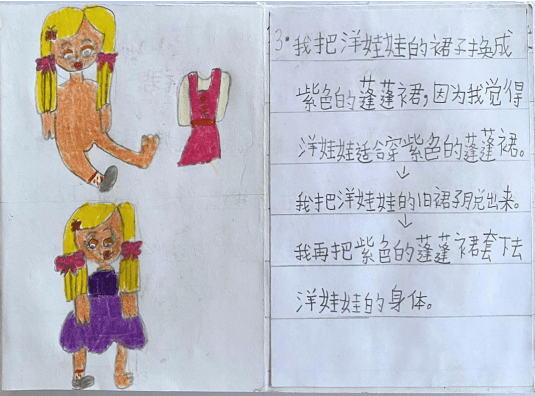 3.我把洋娃娃的裙子换成
紫色的蓬蓬裙,因为我觉得
洋娃娃适合穿紫色的蓬蓬裙。
↓
我把洋娃娃的旧裙子脱出来。
↓
我再把紫色的蓬蓬裙套下去
洋娃娃的身体。